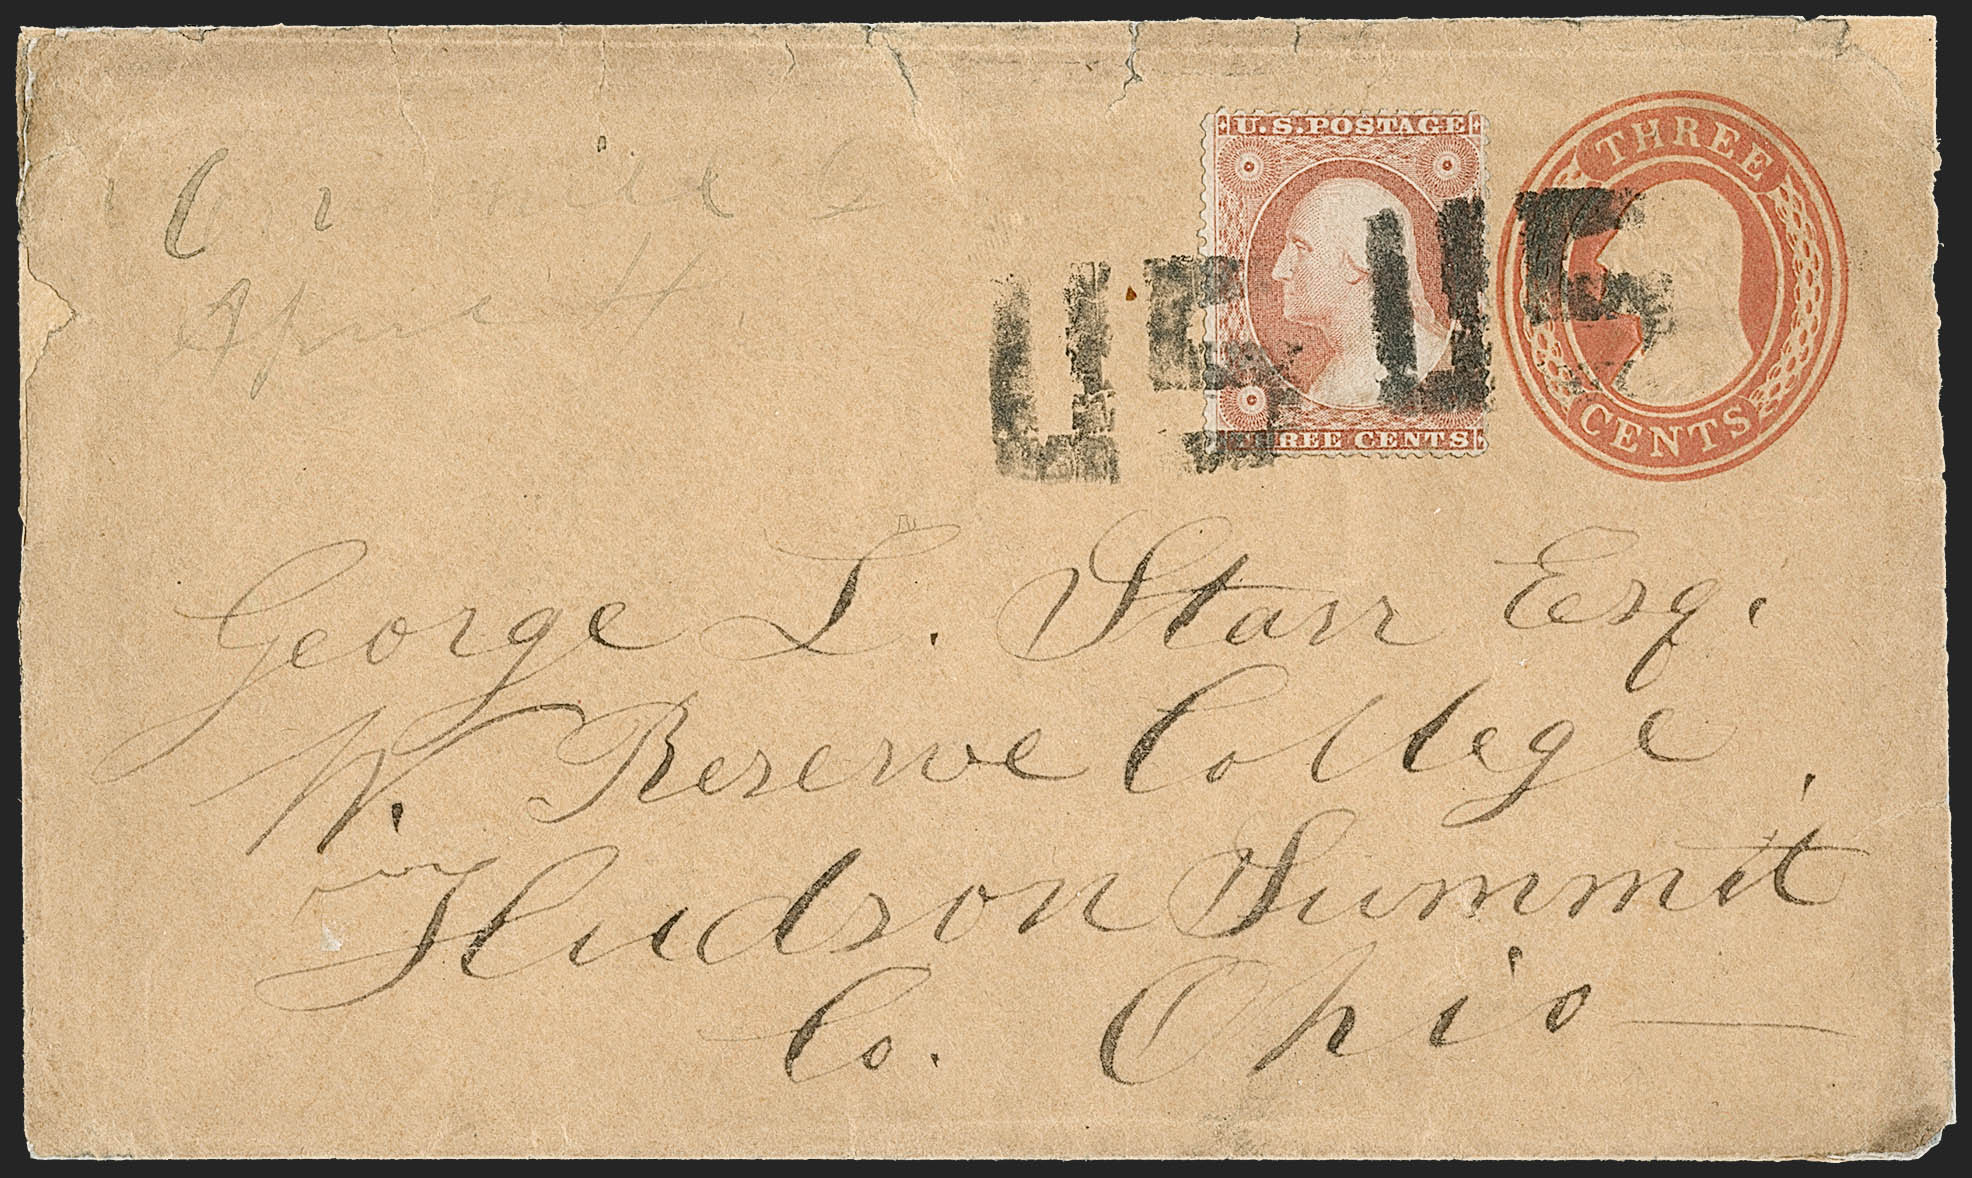 U.S. POSTAGE
THREE CENTS
THREE
CENTS
US US
George L. Starr Esq.
W. Reserve College,
Hudson Summit
Co. Ohio